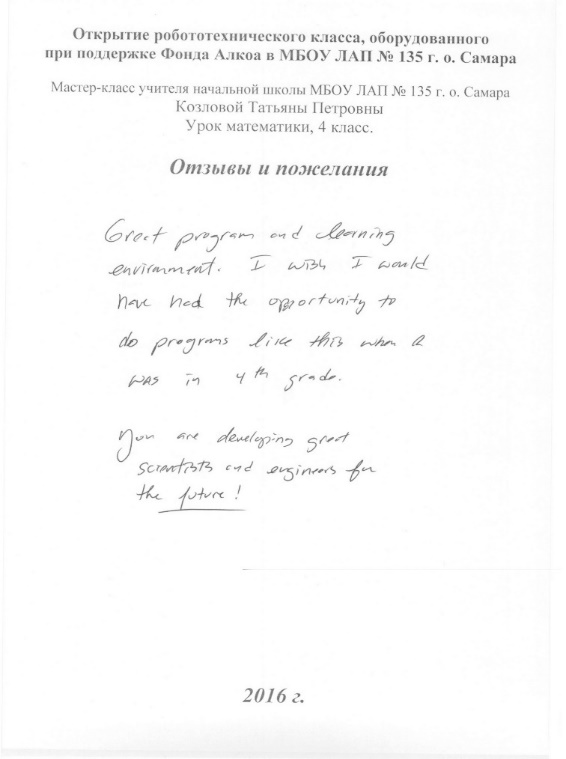 Открытие робототехнического класса, оборудованного
при поддержке Фонда Алкоа в МБОУ ЛАП № 135 г. о. Самара
Мастер-класс учителя начальной школы МБОУ ЛАП № 135 г. о. Самара
Козловой Татьяны Петровны
Урок математики, 4 класс.
Отзывы и пожелания
Great program and learning
environment. I wish I would
have had the opportunity to
do programs like this when I
was in 4th grade.
You are developing great
scientists and engineers for
the future!
2016 г.